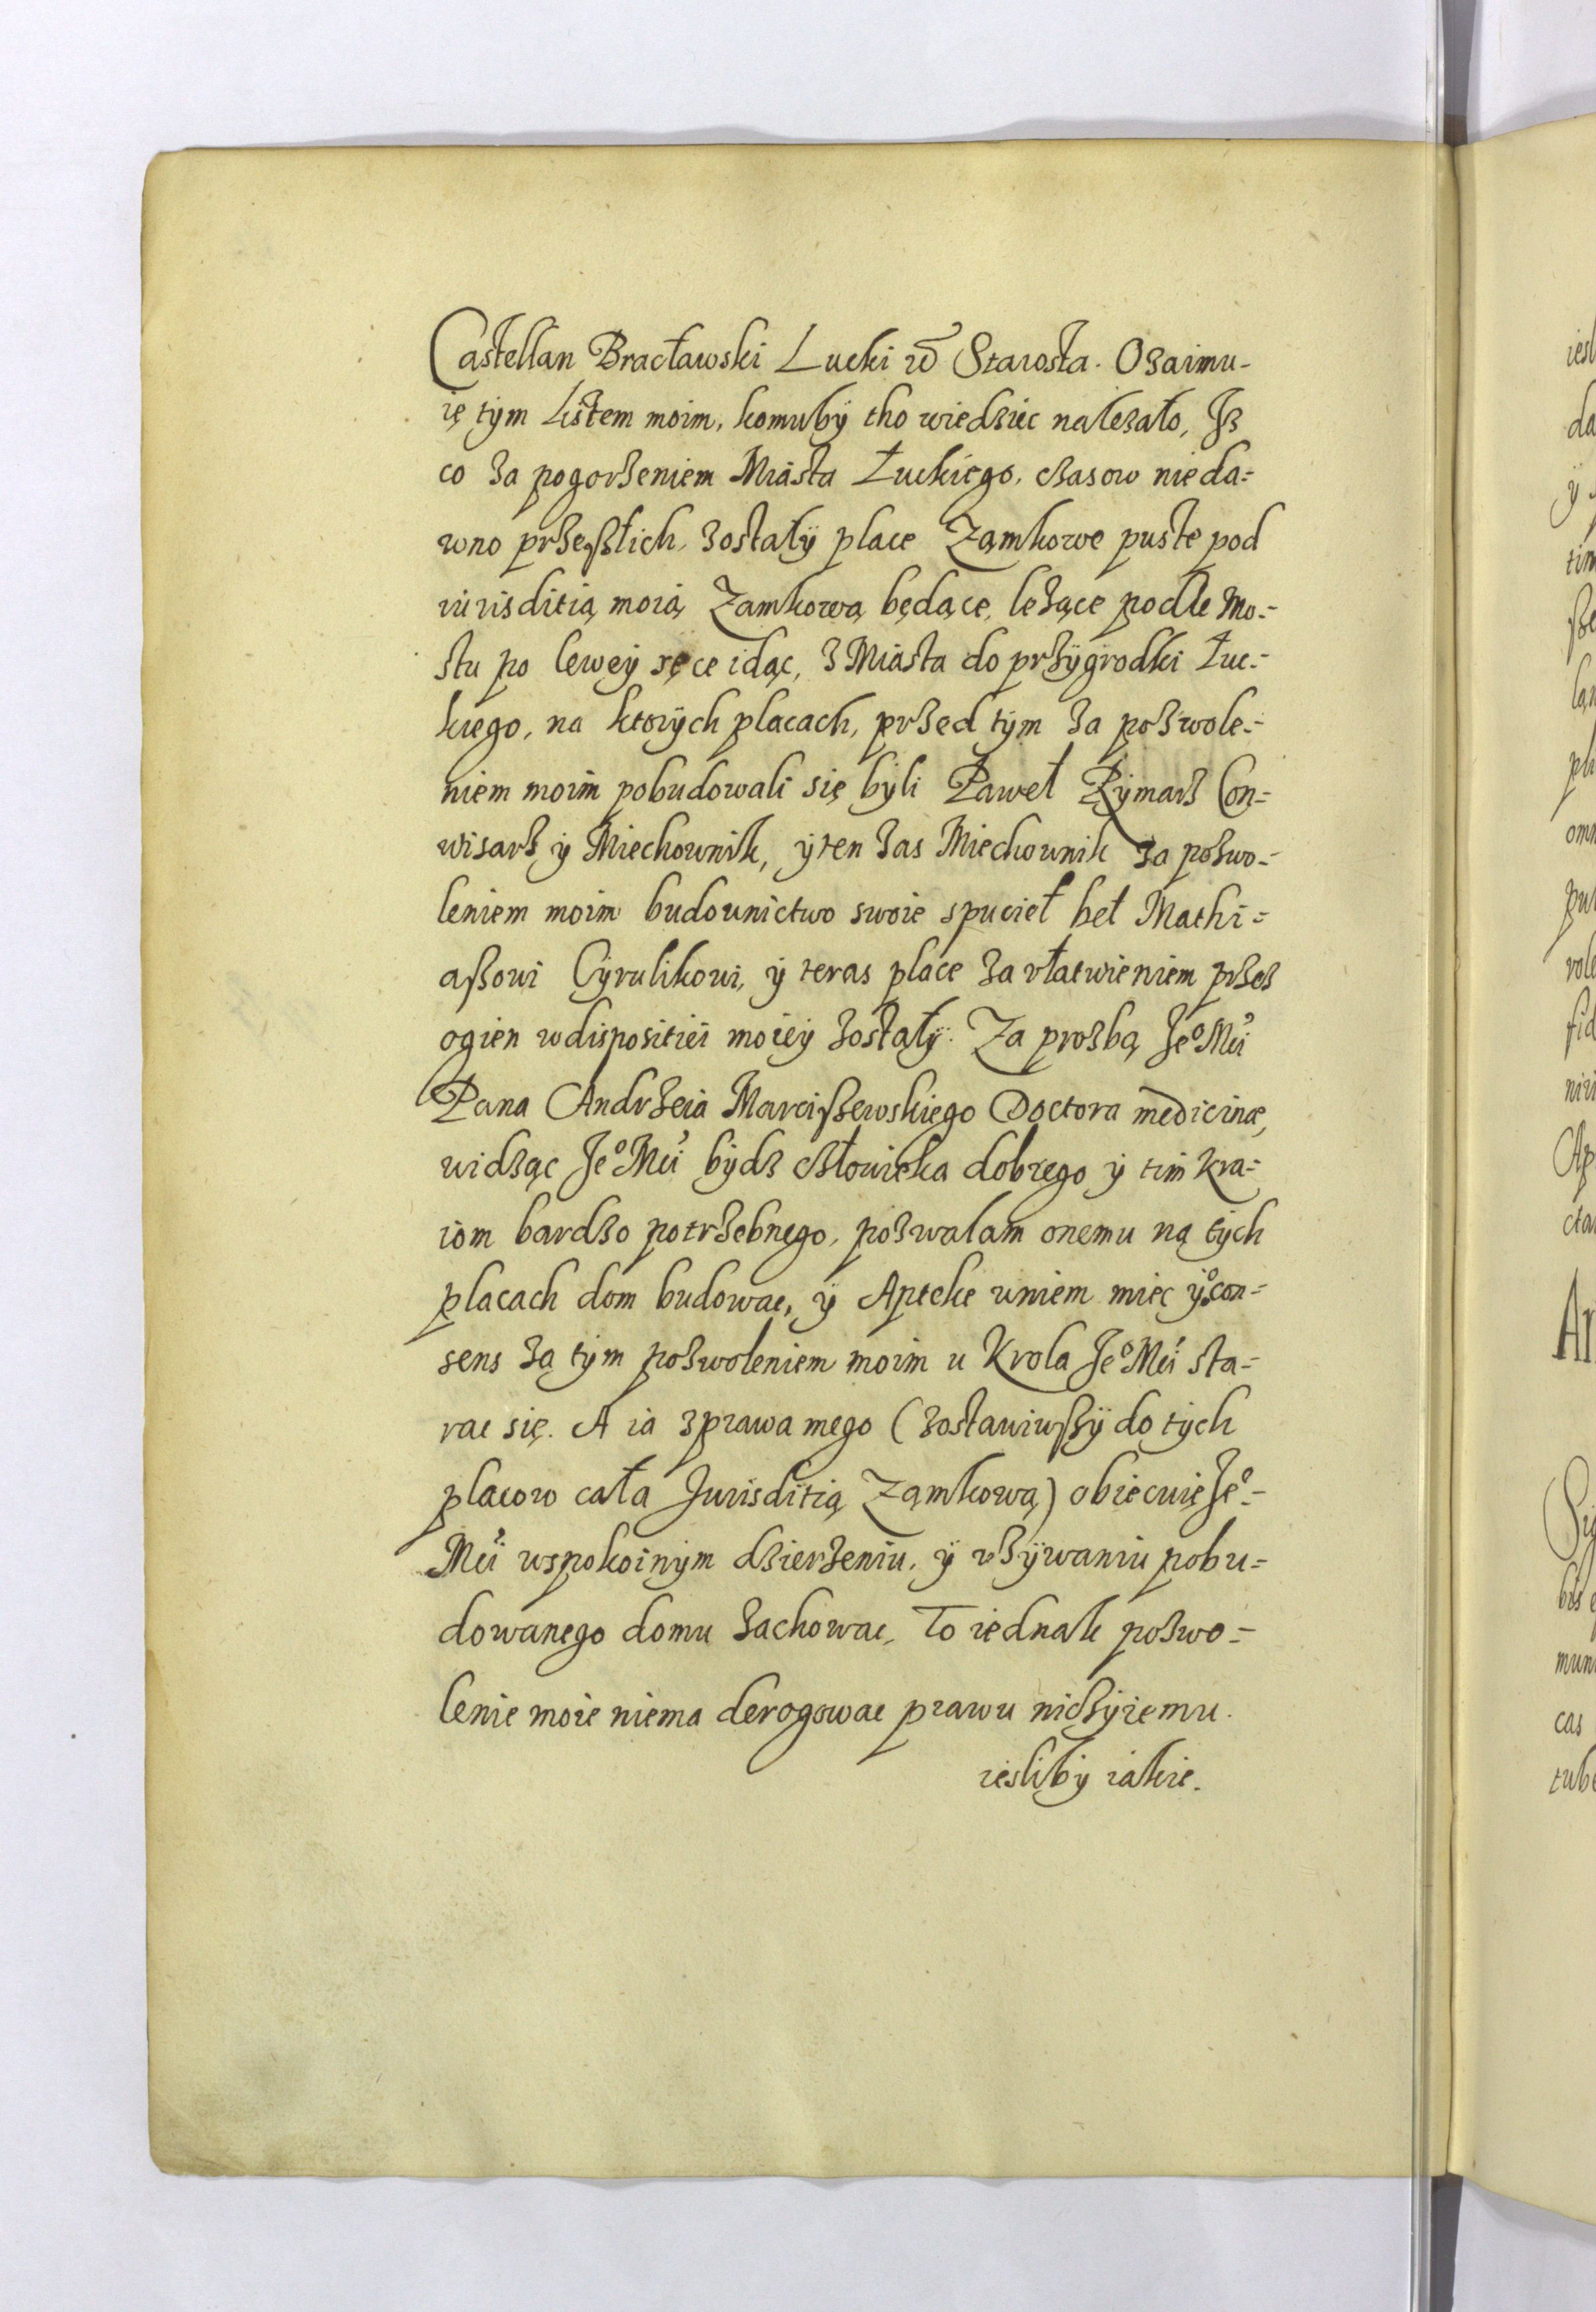 Castellan Bracławski Lucki etc Starosta. Ozaimu-
ię tym Listem moim, komuby tho wiedziec należało, Iż
co za pogorzeniem Miasta Łuckiego, czasow nieda=
wno przeszłich, zostały place Zamkowe puste pod
iurisditią moią Zamkową będące, leżące podle Mo=
stu po lewey ręce idąc, z Miasta do przygrodki Łuc=
kiego, na ktorych placach, przed tym za pozwole=
niem moim pobudowali się byli Paweł Rymarz Con=
wisarz y Miechownik, y ten zas Miechownik za pozwo=
leniem moim budownictwo swoie spucieł beł Mathi=
aszowi Cyrulikowi, y teras place za vłatwieniem przez
ogien w dispositiei moiey zostały. Za prozbą Jeº Mći
Pana Andrzeia Marciszewskiego Doctora medicinæ,
widząc Jeº Mći bydz człowieka dobrego y tim kra=
iom bardzo potrzebnego, pozwalam onemu na tych
placach dom budowac, y Aptekę w niem miec y º con=
sens zą tym pozwoleniem moim u Krola Jeº Mći sta=
rac się. A ia z prawa mego (zostawiwszy do tych
placow całą Jurisditią Zamkową) obiecuię Jeº=
Mći w spokoinym dzierzeniu, y vżywaniu pobu=
dowanego domu zachowac, To iednak pozwo=
lenie moie niema derogowac prawu niczyiemu.
iesliby iakie.
iesl
da
y
tim
sze
lan
pla
omn
pu
role
fid
niri
Ap
cta
Ar
Si
bis
mun
cas
tube